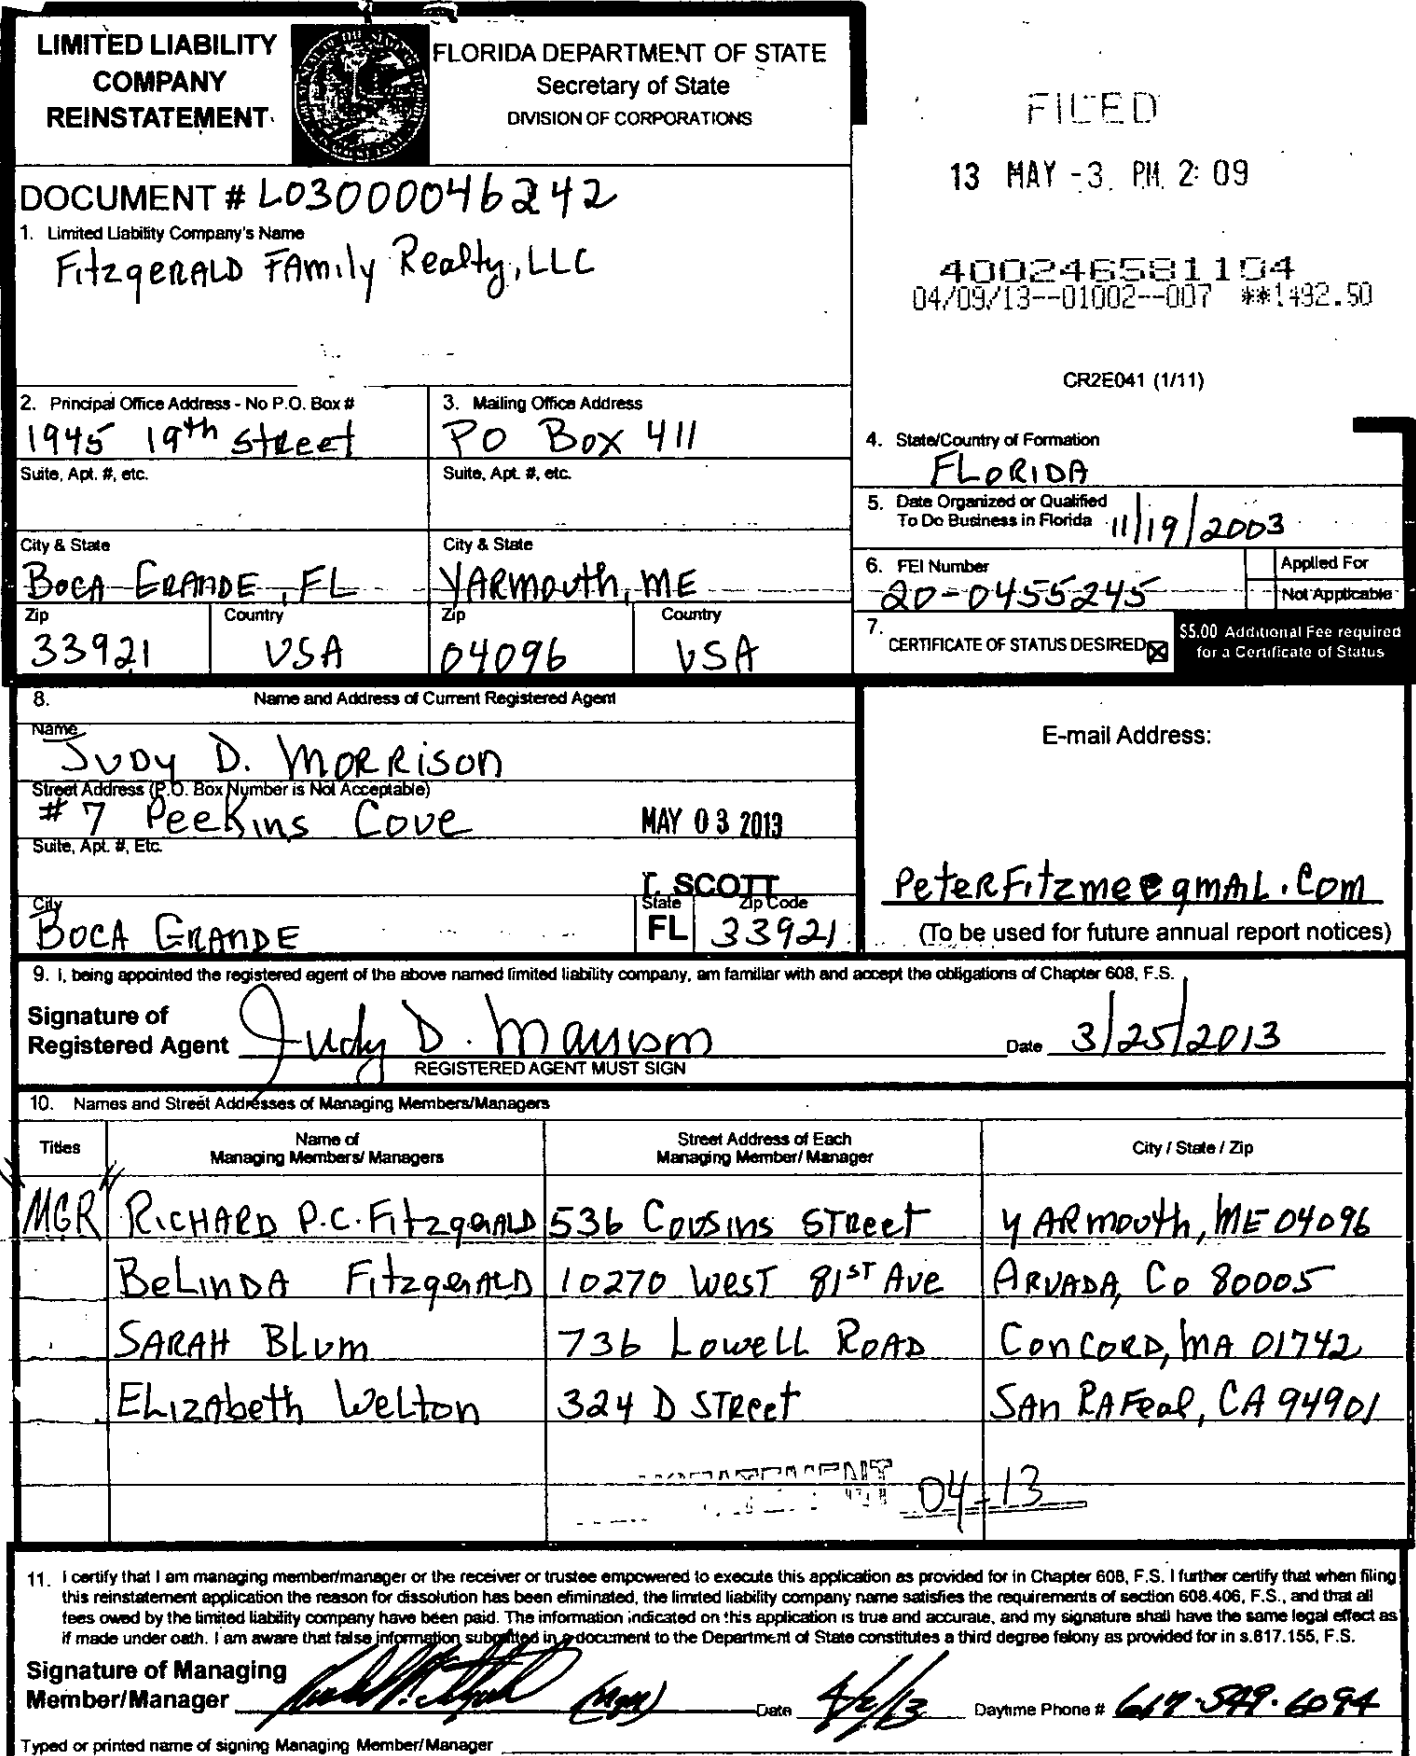 LIMITED LIABILITY
COMPANY
REINSTATEMENT
FLORIDA DEPARTMENT OF STATE
Secretary of State
DIVISION OF CORPORATIONS
FILED
13 MAY -3 PM 2:09
DOCUMENT # L03000046242
1. Limited Liability Company's Name
Fitzgerald Family Realty, LLC
400246581104
04/09/13--01002--007 **1492.50
CR2E041 (1/11)
2. Principal Office Address - No P.O. Box #
1945 19th Street
3. Mailing Office Address
PO Box 411
4. State/Country of Formation
FLORIDA
Suite, Apt. #, etc.
Suite, Apt. #, etc.
5. Date Organized or Qualified
To Do Business in Florida 11/19/2003
City & State
Boca Grande, FL
City & State
Yarmouth, ME
6. FEI Number
20-0455245
Applied For
Not Applicable
Zip
33921
Country
USA
Zip
04096
Country
USA
7. CERTIFICATE OF STATUS DESIRED
$5.00 Additional Fee required
for a Certificate of Status
8. Name and Address of Current Registered Agent
Name
Judy D. Morrison
Street Address (P.O. Box Number is Not Acceptable)
#7 Peekins Cove
MAY 03 2013
Suite, Apt. #, Etc.
T. SCOTT
City
Boca Grande
State
FL
Zip Code
33921
E-mail Address:
PeterFitzme@gmail.com
(To be used for future annual report notices)
9. I, being appointed the registered agent of the above named limited liability company, am familiar with and accept the obligations of Chapter 608, F.S.
Signature of
Registered Agent Judy D. Morrison
REGISTERED AGENT MUST SIGN
Date 3/25/2013
10. Names and Street Addresses of Managing Members/Managers
Titles
Name of
Managing Members/ Managers
Street Address of Each
Managing Member/ Manager
City / State / Zip
MGR Richard P.C. Fitzgerald 536 Cousins Street Yarmouth, ME 04096
Belinda Fitzgerald 10270 West 81st Ave Arvada, Co 80005
Sarah Blum 736 Lowell Road Concord, MA 01742
Elizabeth Welton 324 D Street San Rafeal, CA 94901
04-13
11. I certify that I am managing member/manager or the receiver or trustee empowered to execute this application as provided for in Chapter 608, F.S. I further certify that when filing
this reinstatement application the reason for dissolution has been eliminated, the limited liability company name satisfies the requirements of section 608.406, F.S., and that all
fees owed by the limited liability company have been paid. The information indicated on this application is true and accurate, and my signature shall have the same legal effect as
if made under oath. I am aware that false information submitted in a document to the Department of State constitutes a third degree felony as provided for in s.817.155, F.S.
Signature of Managing
Member/Manager
Date 4/2/13
Daytime Phone # 617-549-6094
Typed or printed name of signing Managing Member/Manager